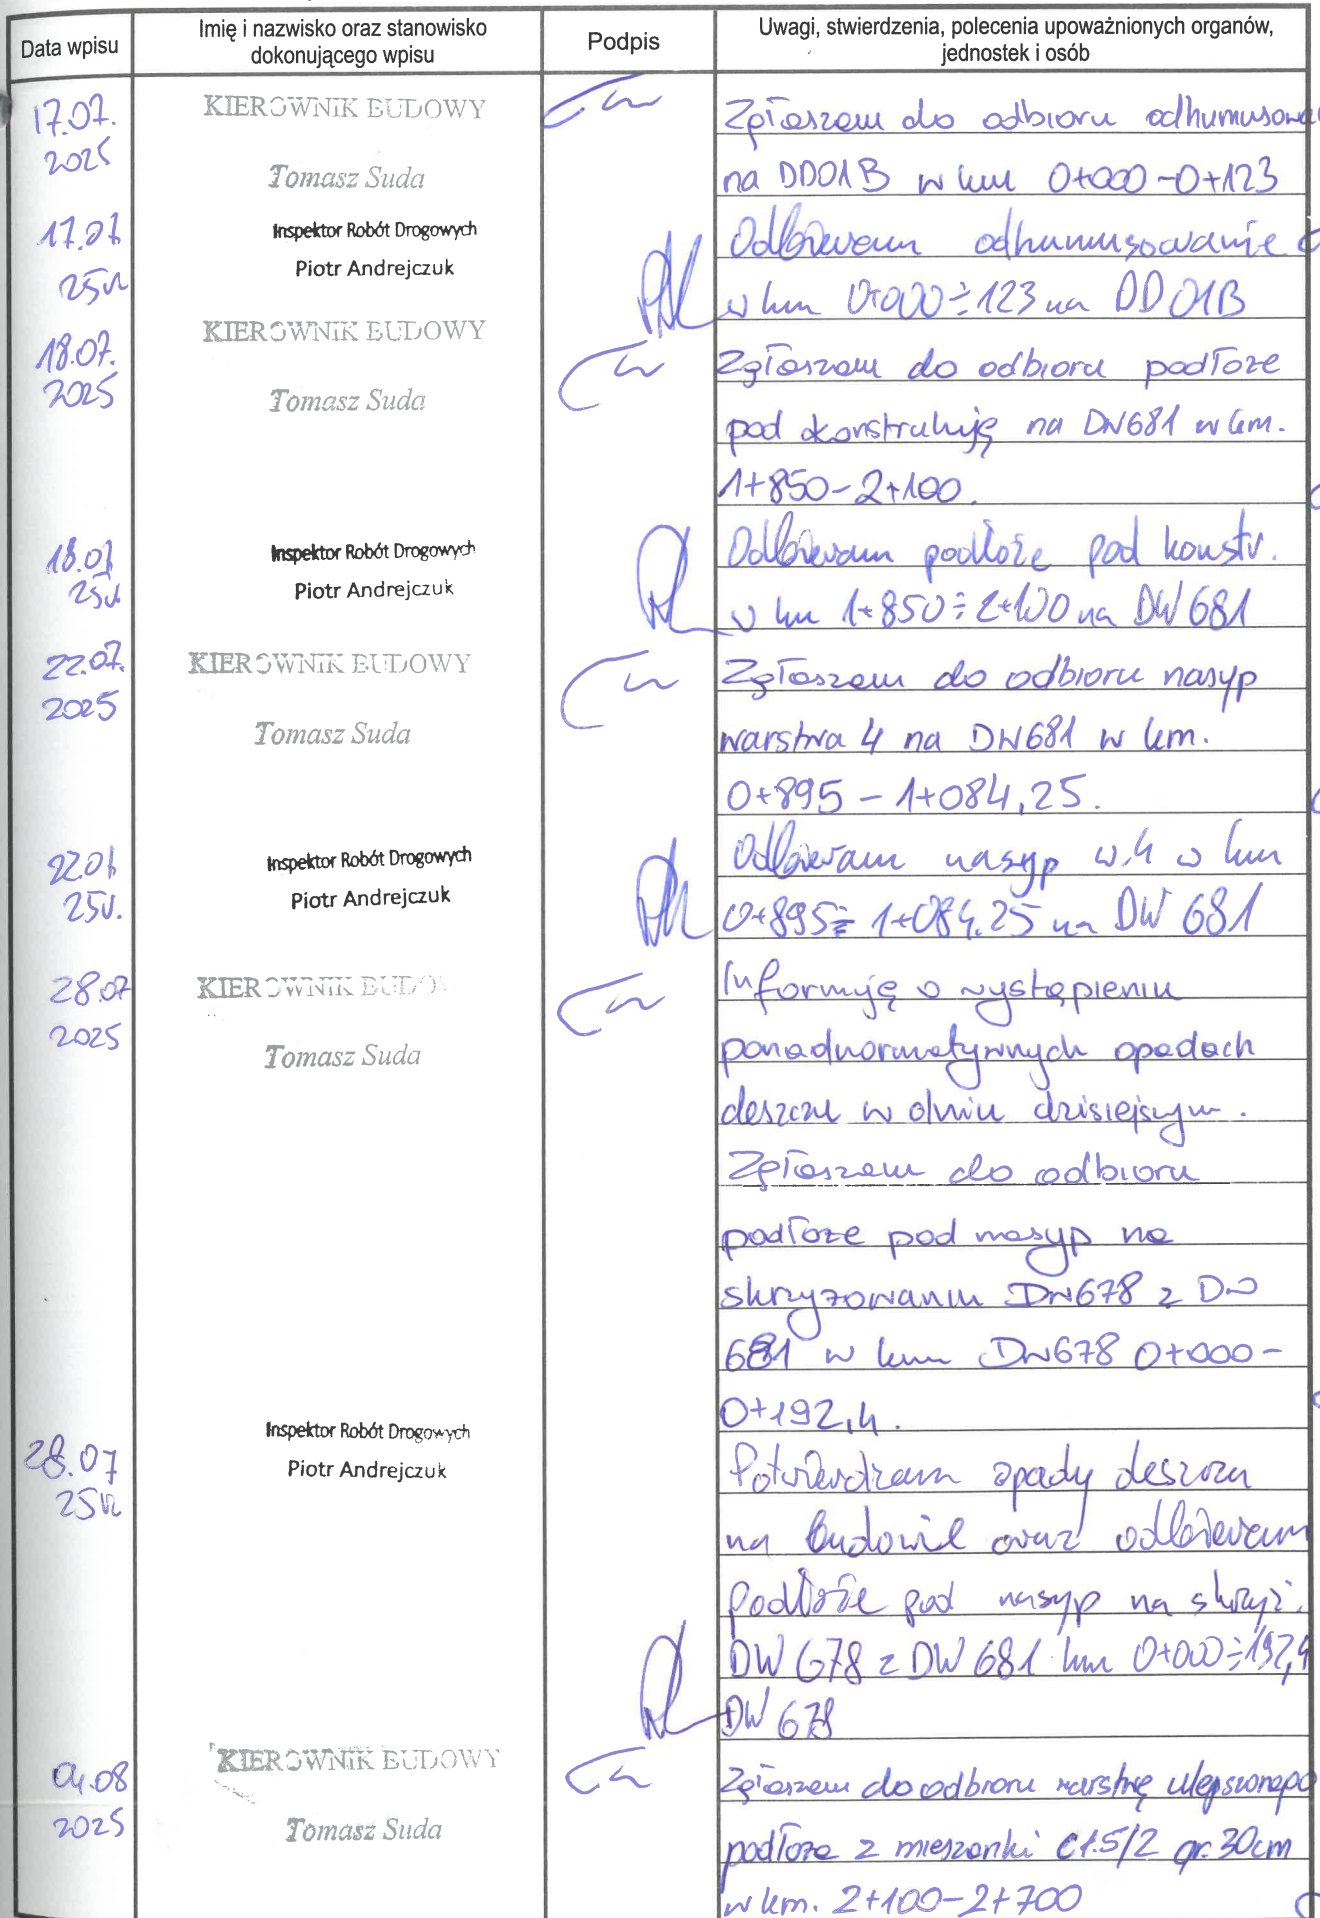 Data wpisu
Imię i nazwisko oraz stanowisko
dokonującego wpisu
Podpis
Uwagi, stwierdzenia, polecenia upoważnionych organów,
jednostek i osób
17.07.
2025
KIEROWNIK BUDOWY
Tomasz Suda
Zgłaszam do odbioru odhumusowa
na DD01B w km 0+000-0+123
17.07
25r.
Inspektor Robót Drogowych
Piotr Andrejczuk
Odbieram odhumusowanie
w km 0+000÷123 na DD 01B
18.07.
2025
KIEROWNIK BUDOWY
Tomasz Suda
Zgłaszam do odbioru podłoże
pod konstrukcję na DW681 w km.
1+850-2+100.
18.07
25r.
Inspektor Robót Drogowych
Piotr Andrejczuk
Odbieram podłoże pod konstr.
w km 1+850÷2+100 na DW 681
22.07.
2025
KIEROWNIK BUDOWY
Tomasz Suda
Zgłaszam do odbioru nasyp
warstwa 4 na DW681 w km.
0+895 - 1+084,25.
22.07
25r.
Inspektor Robót Drogowych
Piotr Andrejczuk
Odbieram nasyp w.4 w km
0+895÷1+084.25 na DW 681
28.07
2025
KIEROWNIK BUDO
Tomasz Suda
Informuję o wystąpieniu
ponadnormatywnych opadach
deszczu w dniu dzisiejszym.
Zgłaszam do odbioru
podłoże pod nasyp na
skrzyżowaniu DW678 z DW
681 w km DW678 0+000-
0+192,4.
28.07
25r.
Inspektor Robót Drogowych
Piotr Andrejczuk
Potwierdzam opady deszczu
na budowie oraz odbieram
podłoże pod nasyp na skrzyż.
DW 678 z DW 681 km 0+000÷192,4
DW 678
04.08
2025
KIEROWNIK BUDOWY
Tomasz Suda
Zgłaszam do odbioru warstwę ulepszonego
podłoża z mieszanki C1.5/2 gr. 30cm
w km. 2+100-2+700